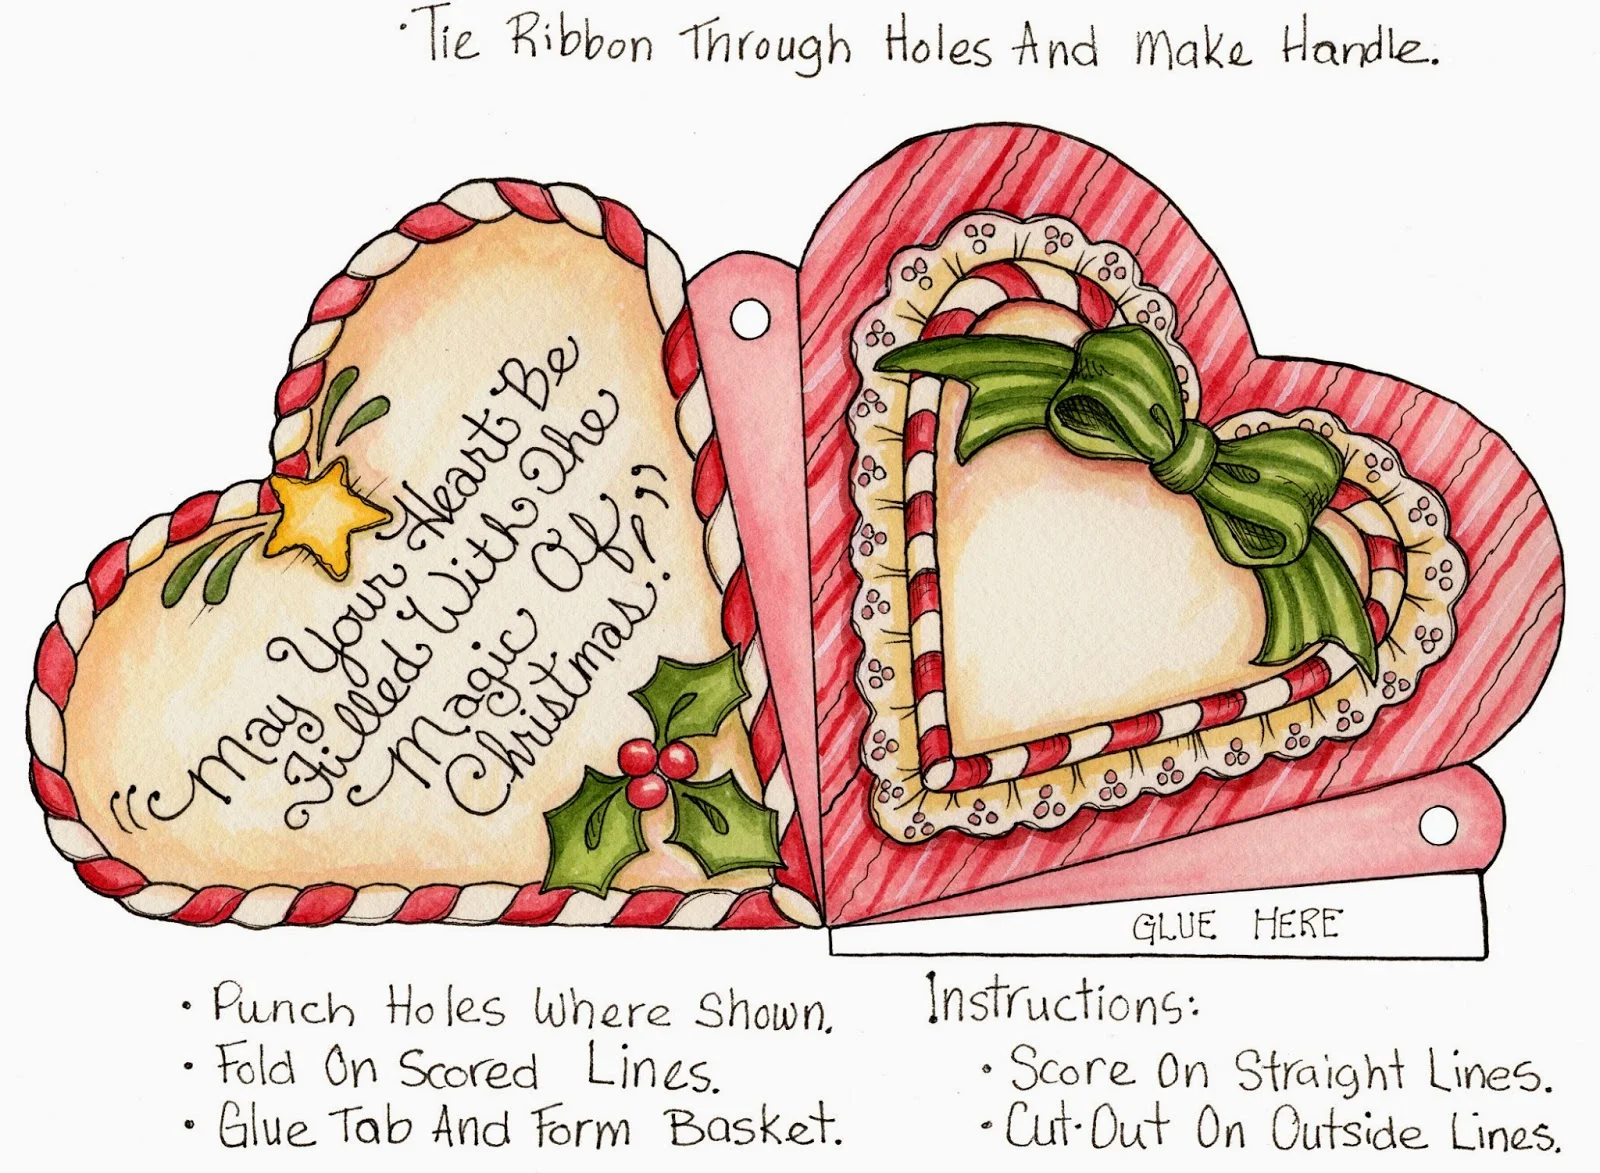 ·Tie Ribbon Through Holes And Make Handle.
"May Your Heart Be
Filled With The
Magic Of
Christmas!"
GLUE HERE
· Punch Holes Where Shown.
· Fold On Scored Lines.
· Glue Tab And Form Basket.
Instructions:
· Score On Straight Lines.
· Cut-Out On Outside Lines.